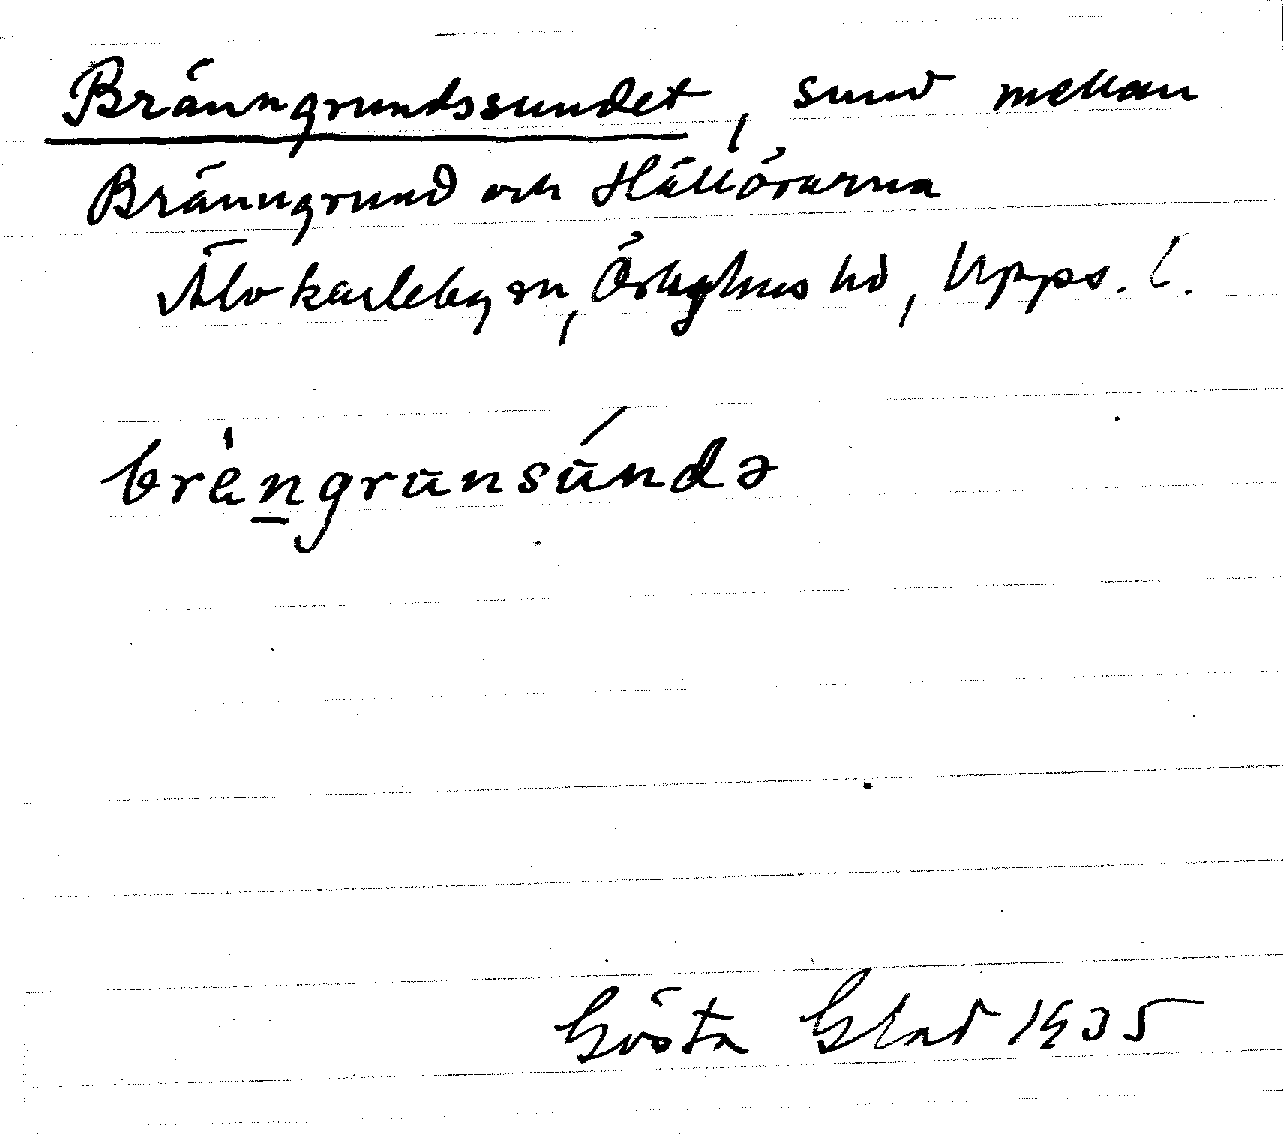 Bränngrundssundet, sund mellan
Bränngrund och Hällörarna
Älvkarleby sn, Örbyhus hd, Upps. l.
brèn̲grūnsū́ndə
Gösta Glad 1935